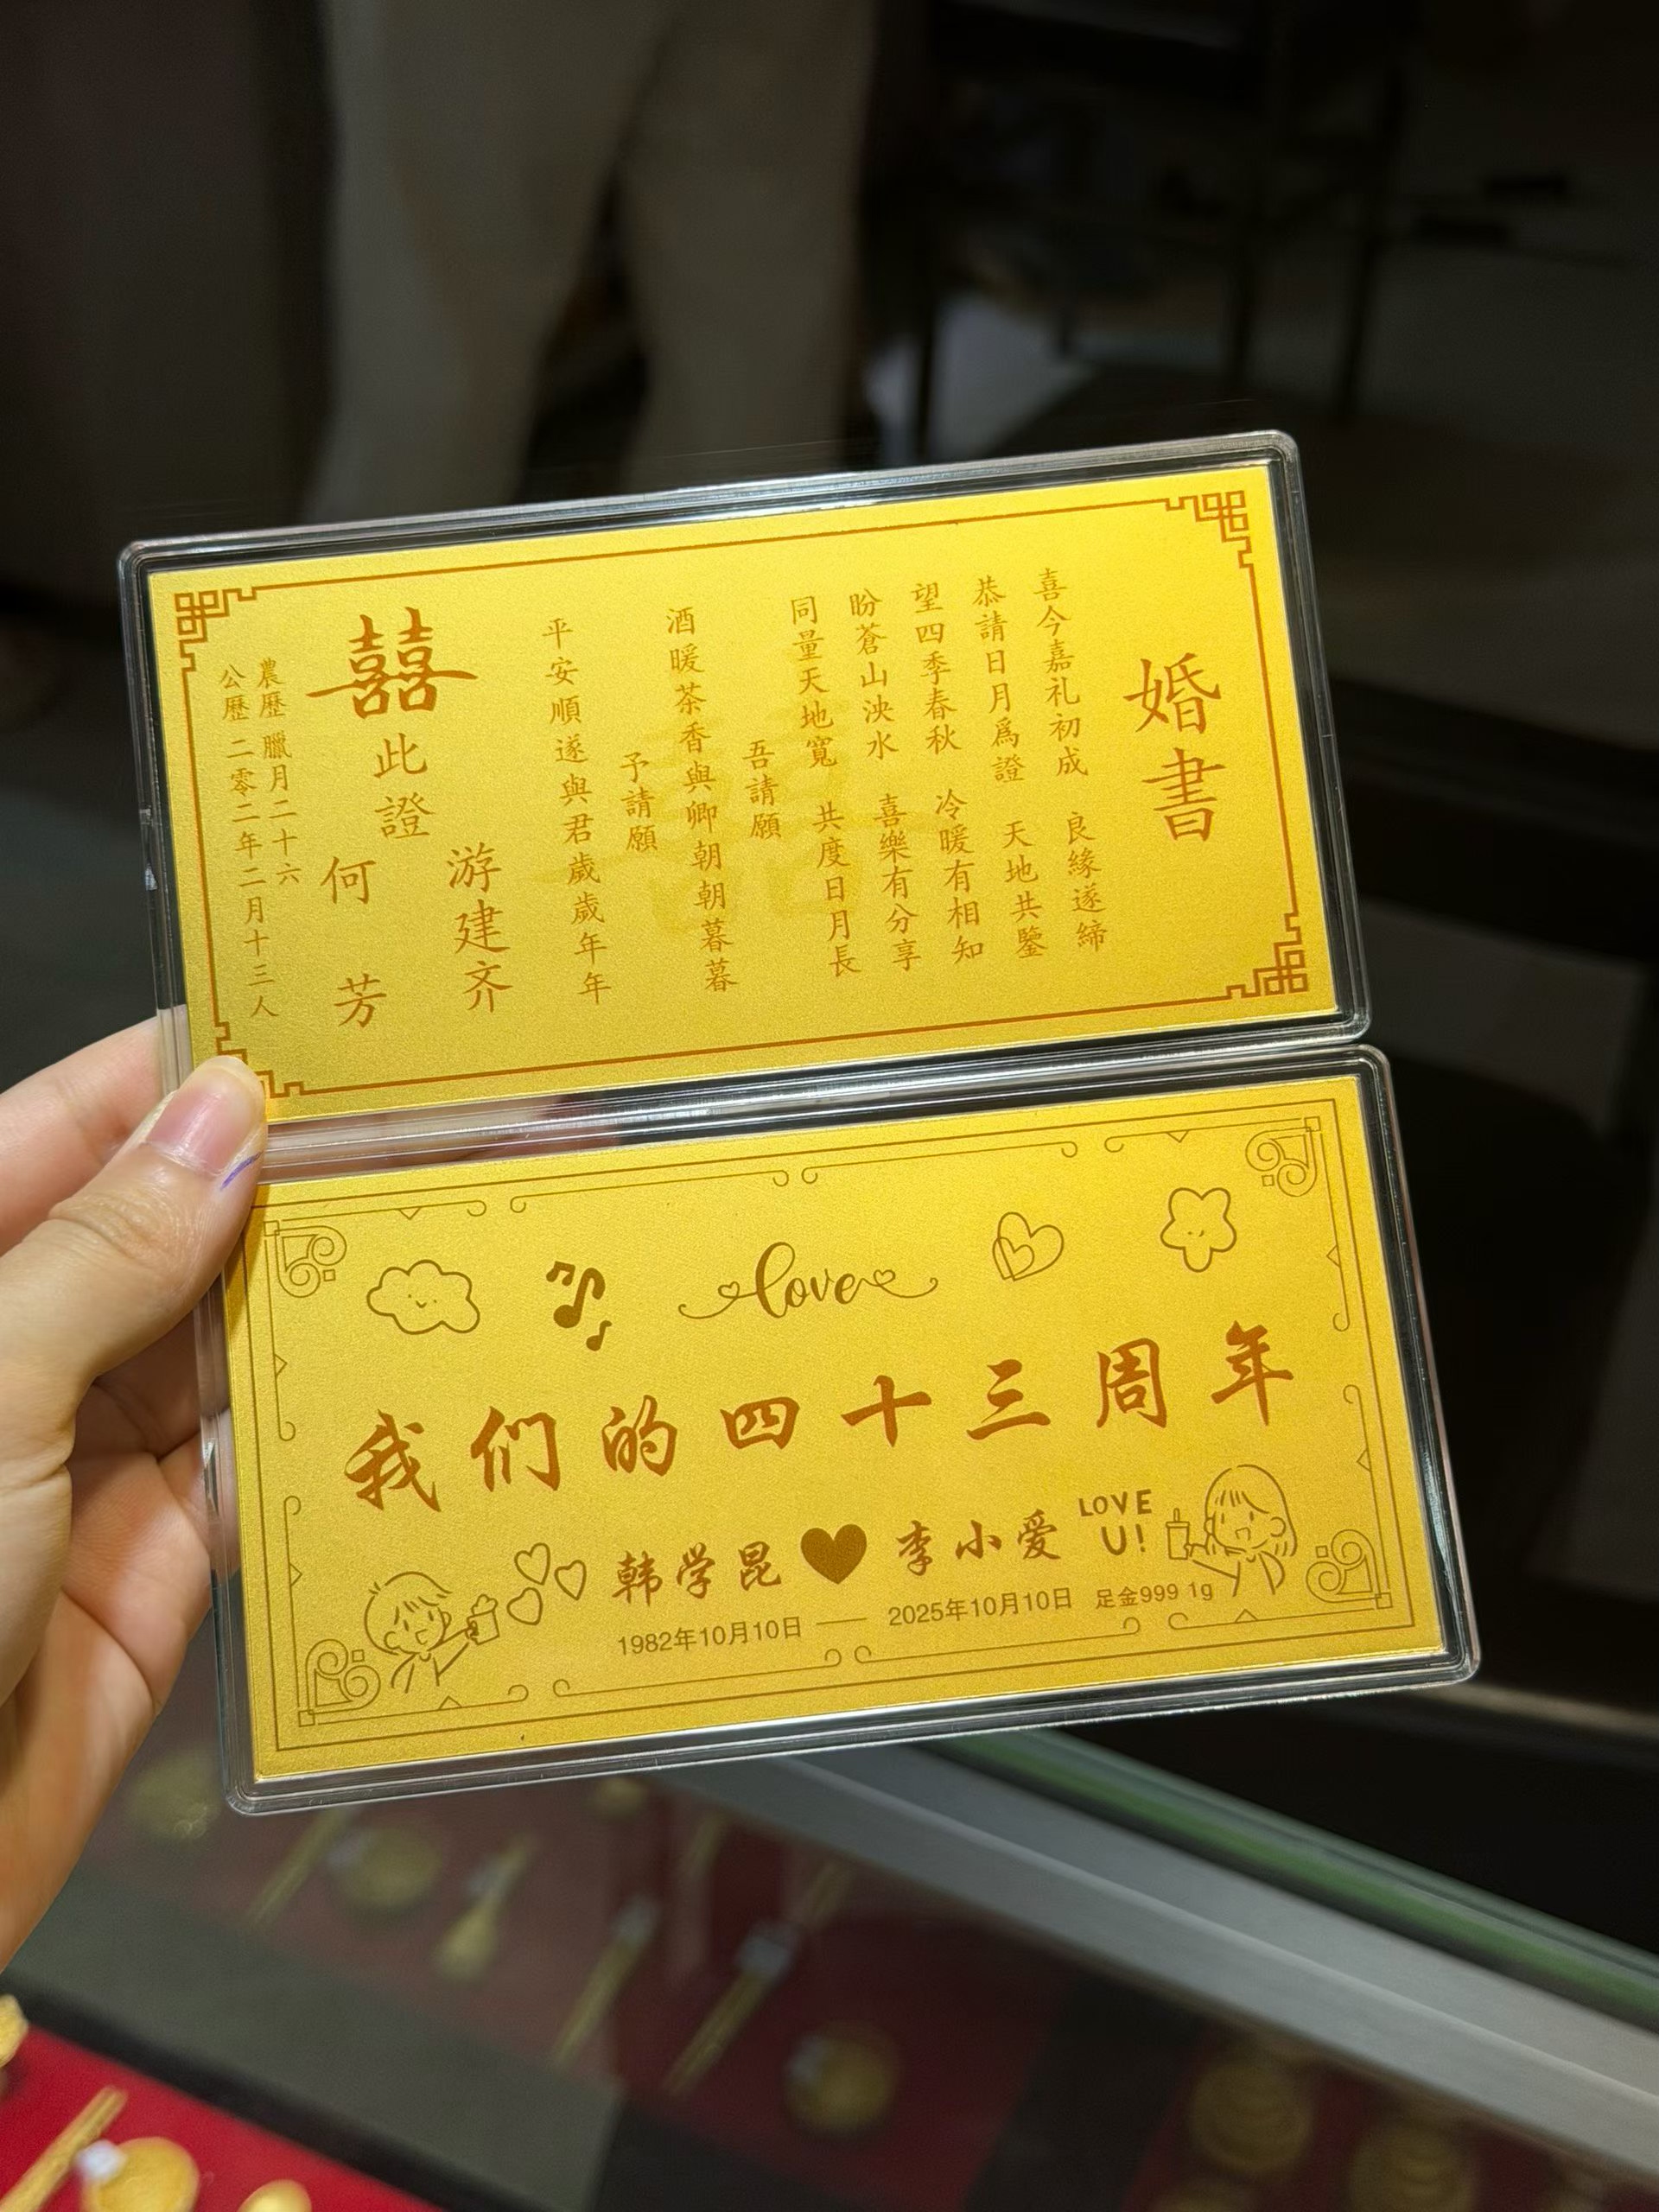 婚書
喜今嘉礼初成 良緣遂締
恭請日月爲證 天地共鑒
望四季春秋 冷暖有相知
盼蒼山泱水 喜樂有分享
同量天地寬 共度日月長
吾請願
酒暖茶香與卿朝朝暮暮
予請願
平安順遂與君歲歲年年
囍
此證
游建齐
何芳
農歷 臘月二十六
公歷 二零二年二月十三人
love
我们的四十三周年
LOVE
U!
韩学昆 李小爱
1982年10月10日 —— 2025年10月10日 足金999 1g